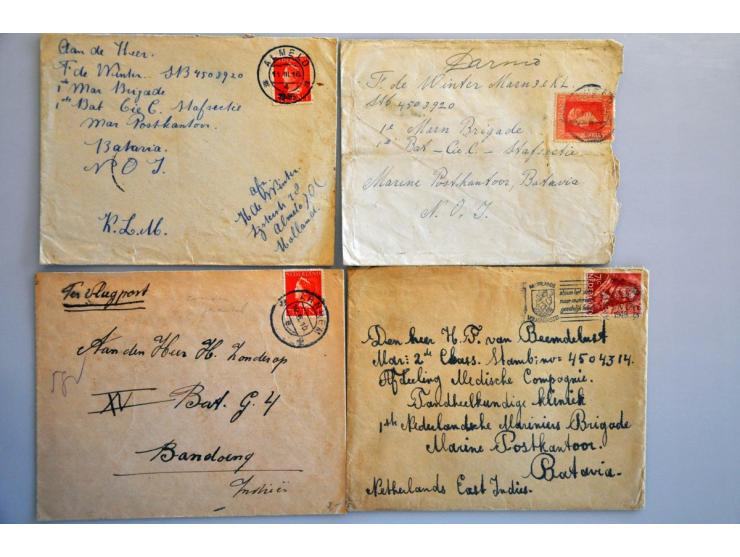 Aan de Heer.
F. de Winter. SB 4503920
1e Mar Brigade
1ste Bat Cie C. Stafsectie
Mar Postkantoor.
Batavia
N O I
K.L.M.
afz.
H de Winter
Almelo
Holland
ALMELO
F. de Winter Marn 3e KL.
Stb 4503920
1e Marn Brigade
1e Bat-Cie C- Stafsectie
Marine Postkantoor, Batavia
N. O. I.
Per vliegpost
NEDERLAND
Aan den Heer H. Zonderop
XV Bat. G. 4
Bandoeng
Indië
Den heer H. F. van Beemdelust
Mar: 2de Class. Stamb: no = 4504314.
Afdeeling Medische Compagnie.
Tandheelkundige Kliniek
1ste Nederlandsche Mariniers Brigade
Marine Postkantoor.
Batavia.
Netherlands East Indies.